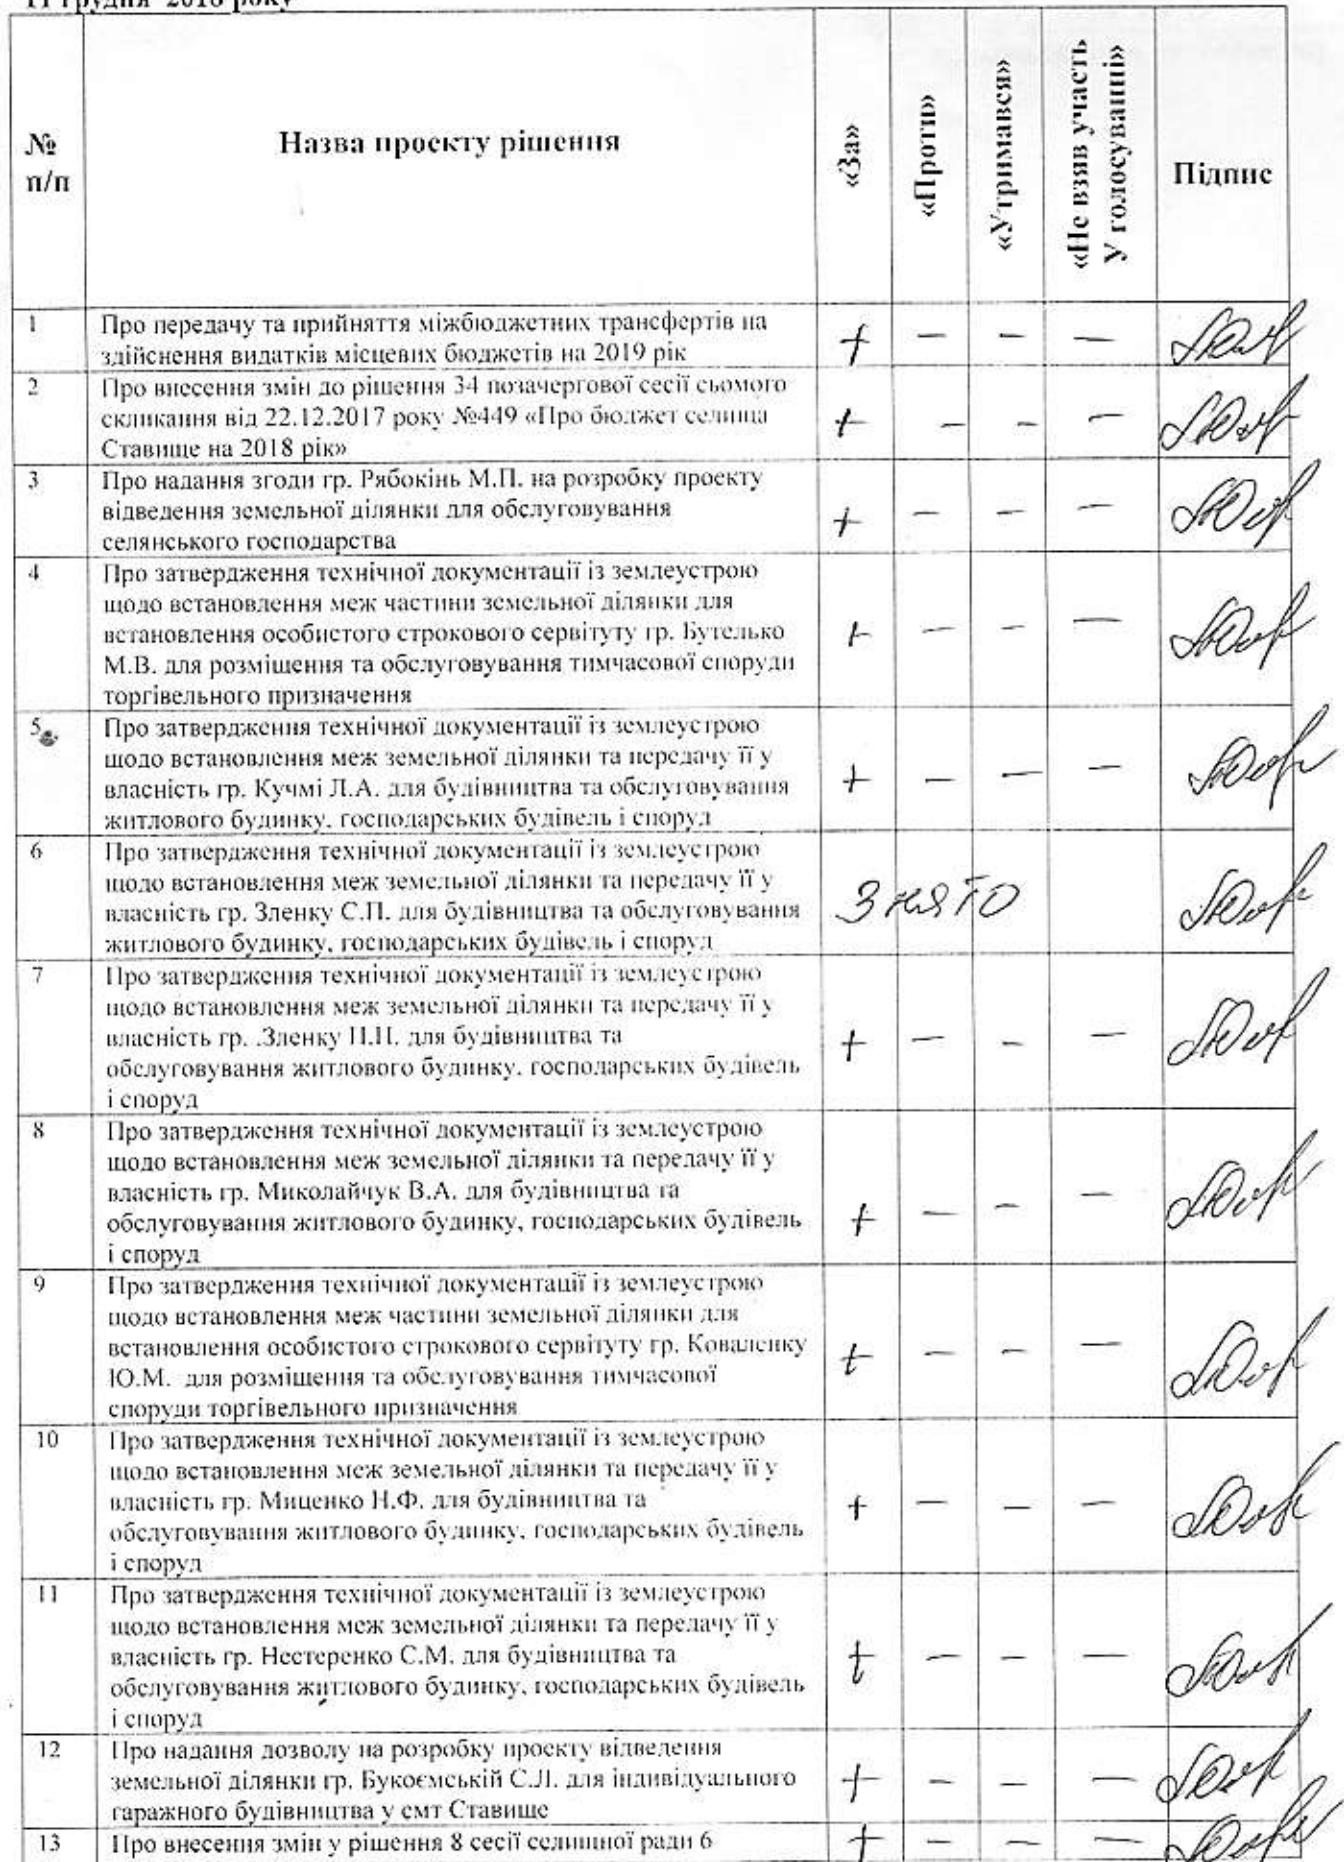 11 грудня 2018 року
№ п/п
Назва проекту рішення
«За»
«Проти»
«Утримався»
«Не взяв участь
У голосуванні»
Підпис
1
Про передачу та прийняття міжбюджетних трансфертів на
здійснення видатків місцевих бюджетів на 2019 рік
+ – – –
2
Про внесення змін до рішення 34 позачергової сесії сьомого
скликання від 22.12.2017 року №449 «Про бюджет селища
Ставище на 2018 рік»
+ – – –
3
Про надання згоди гр. Рябокінь М.П. на розробку проекту
відведення земельної ділянки для обслуговування
селянського господарства
+ – – –
4
Про затвердження технічної документації із землеустрою
щодо встановлення меж частини земельної ділянки для
встановлення особистого строкового сервітуту гр. Бутелько
М.В. для розміщення та обслуговування тимчасової споруди
торгівельного призначення
+ – – –
5
Про затвердження технічної документації із землеустрою
щодо встановлення меж земельної ділянки та передачу її у
власність гр. Кучмі Л.А. для будівництва та обслуговування
житлового будинку, господарських будівель і споруд
+ – – –
6
Про затвердження технічної документації із землеустрою
щодо встановлення меж земельної ділянки та передачу її у
власність гр. Зленку С.П. для будівництва та обслуговування
житлового будинку, господарських будівель і споруд
Знято
7
Про затвердження технічної документації із землеустрою
щодо встановлення меж земельної ділянки та передачу її у
власність гр. .Зленку П.П. для будівництва та
обслуговування житлового будинку, господарських будівель
і споруд
+ – – –
8
Про затвердження технічної документації із землеустрою
щодо встановлення меж земельної ділянки та передачу її у
власність гр. Миколайчук В.А. для будівництва та
обслуговування житлового будинку, господарських будівель
і споруд
+ – – –
9
Про затвердження технічної документації із землеустрою
щодо встановлення меж частини земельної ділянки для
встановлення особистого строкового сервітуту гр. Коваленку
Ю.М. для розміщення та обслуговування тимчасової
споруди торгівельного призначення
+ – – –
10
Про затвердження технічної документації із землеустрою
щодо встановлення меж земельної ділянки та передачу її у
власність гр. Миценко Н.Ф. для будівництва та
обслуговування житлового будинку, господарських будівель
і споруд
+ – – –
11
Про затвердження технічної документації із землеустрою
щодо встановлення меж земельної ділянки та передачу її у
власність гр. Нестеренко С.М. для будівництва та
обслуговування житлового будинку, господарських будівель
і споруд
+ – – –
12
Про надання дозволу на розробку проекту відведення
земельної ділянки гр. Букоємській С.Л. для індивідуального
гаражного будівництва у смт Ставище
+ – – –
13
Про внесення змін у рішення 8 сесії селищної ради 6
+ – – –